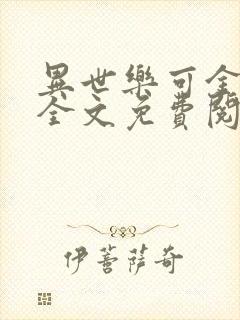 異世樂可全
全文免費閱
伊蕾薩奇